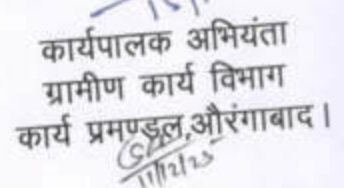 कार्यपालक अभियंता
ग्रामीण कार्य विभाग
कार्य प्रमण्डल,औरंगाबाद।
11/12/23